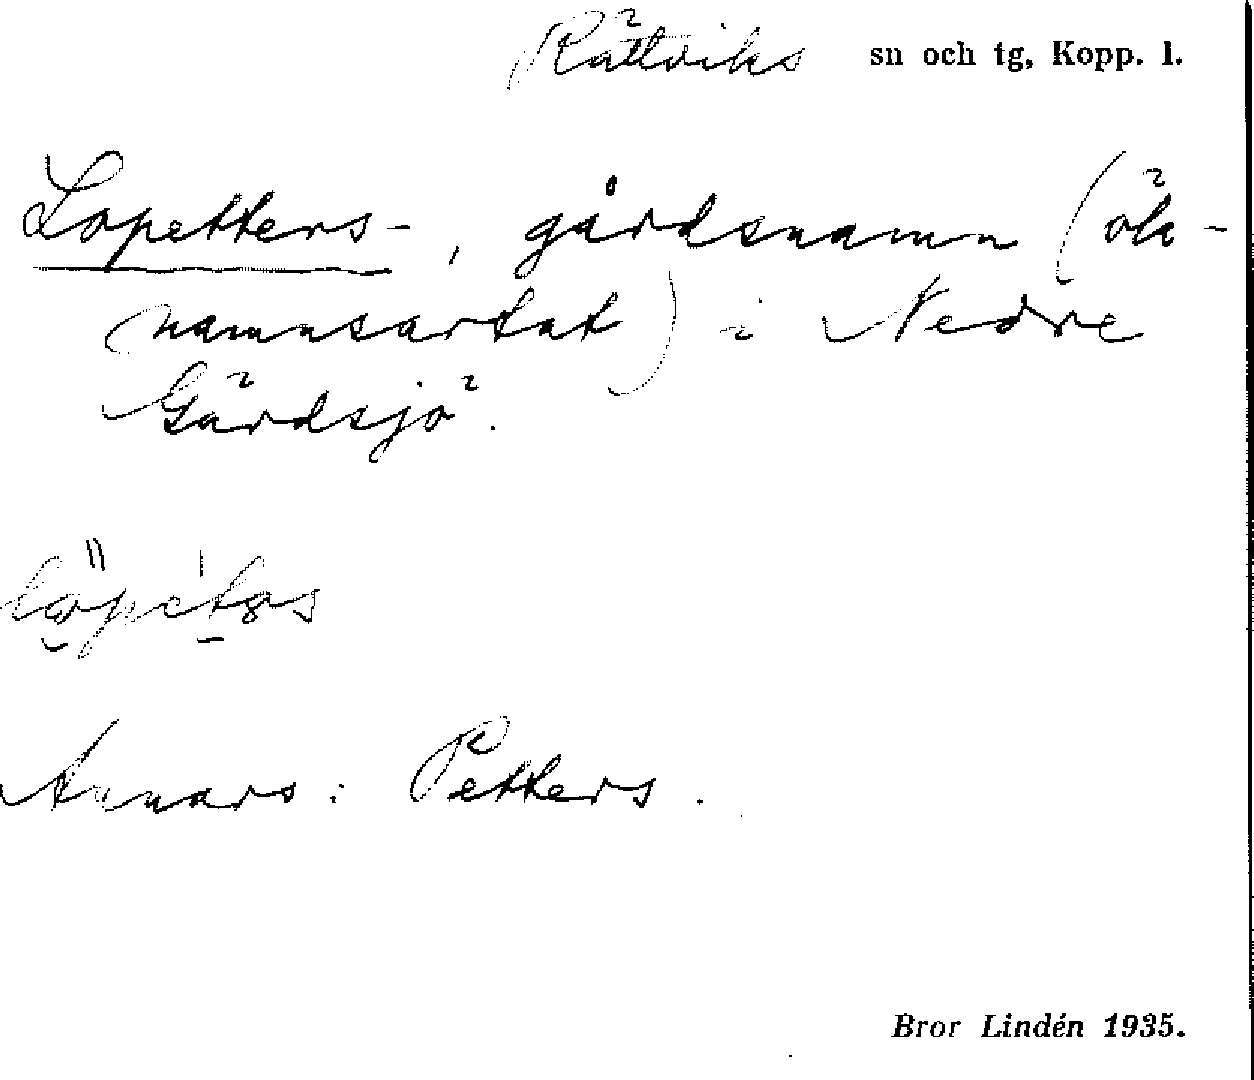 Rättviks sn och tg, Kopp. l.
Lopetters-, gårdsnamn (ök-
namnsartat) i Nedre
Gärdsjö.
Annars: Petters.
Bror Lindén 1935.